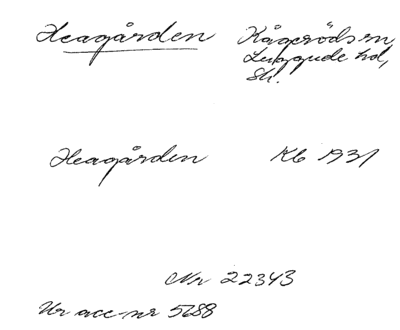 Heagården Kågeröds sn,
Luggude hd,
Sk.
Heagården Kb 1931
Nr 22343
Ur acc-nr 5688